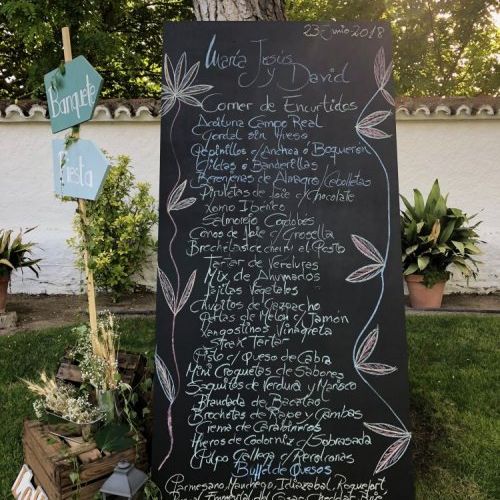 23 Junio 2018
María Jesús
y David
Banquete
Fiesta
Corner de Encurtidos
Aceituna Campo Real
Gordal sin hueso
Pepinillos c/ Anchoa ó Boquerón
Gildas ó Banderillas
Berenjenas de Almagro/Cebolletas
Piruletas de Foie c/ Chocolate
Jamo Ibérico
Salmorejo Cordobés
Conos de Foie c/ Grosella
Brochetas de cherry al Pesto
Tartar de Verduras
Mix de Ahumados
Tejitas Vegetales
Chupitos de Gazpacho
Perlas de Melón c/ Jamón
Langostinos Vinagreta
Steak Tartar
Pisto c/ Queso de Cabra
Mini Croquetas de Sabores
Saquitos de Verdura y Marisco
Brandada de Bacalao
Brochetas de Rape y Gambas
Crema de Carabineros
Huevos de Codorniz c/ Sobrasada
Pulpo Gallega c/
Buffet de Quesos
Parmesano, Manchego, Idiazabal, Roquefort
Emmental